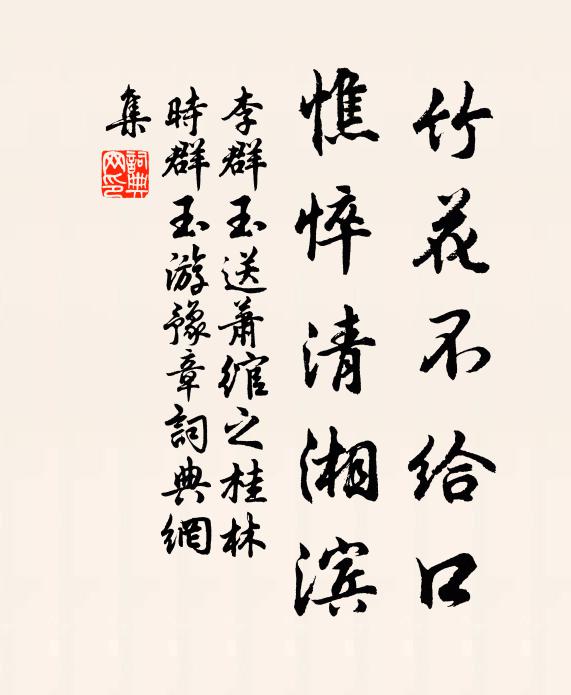 竹花不给口
憔悴清湘滨
李群玉送萧绾之桂林
時群玉游豫章詞典網
集
詞典网印